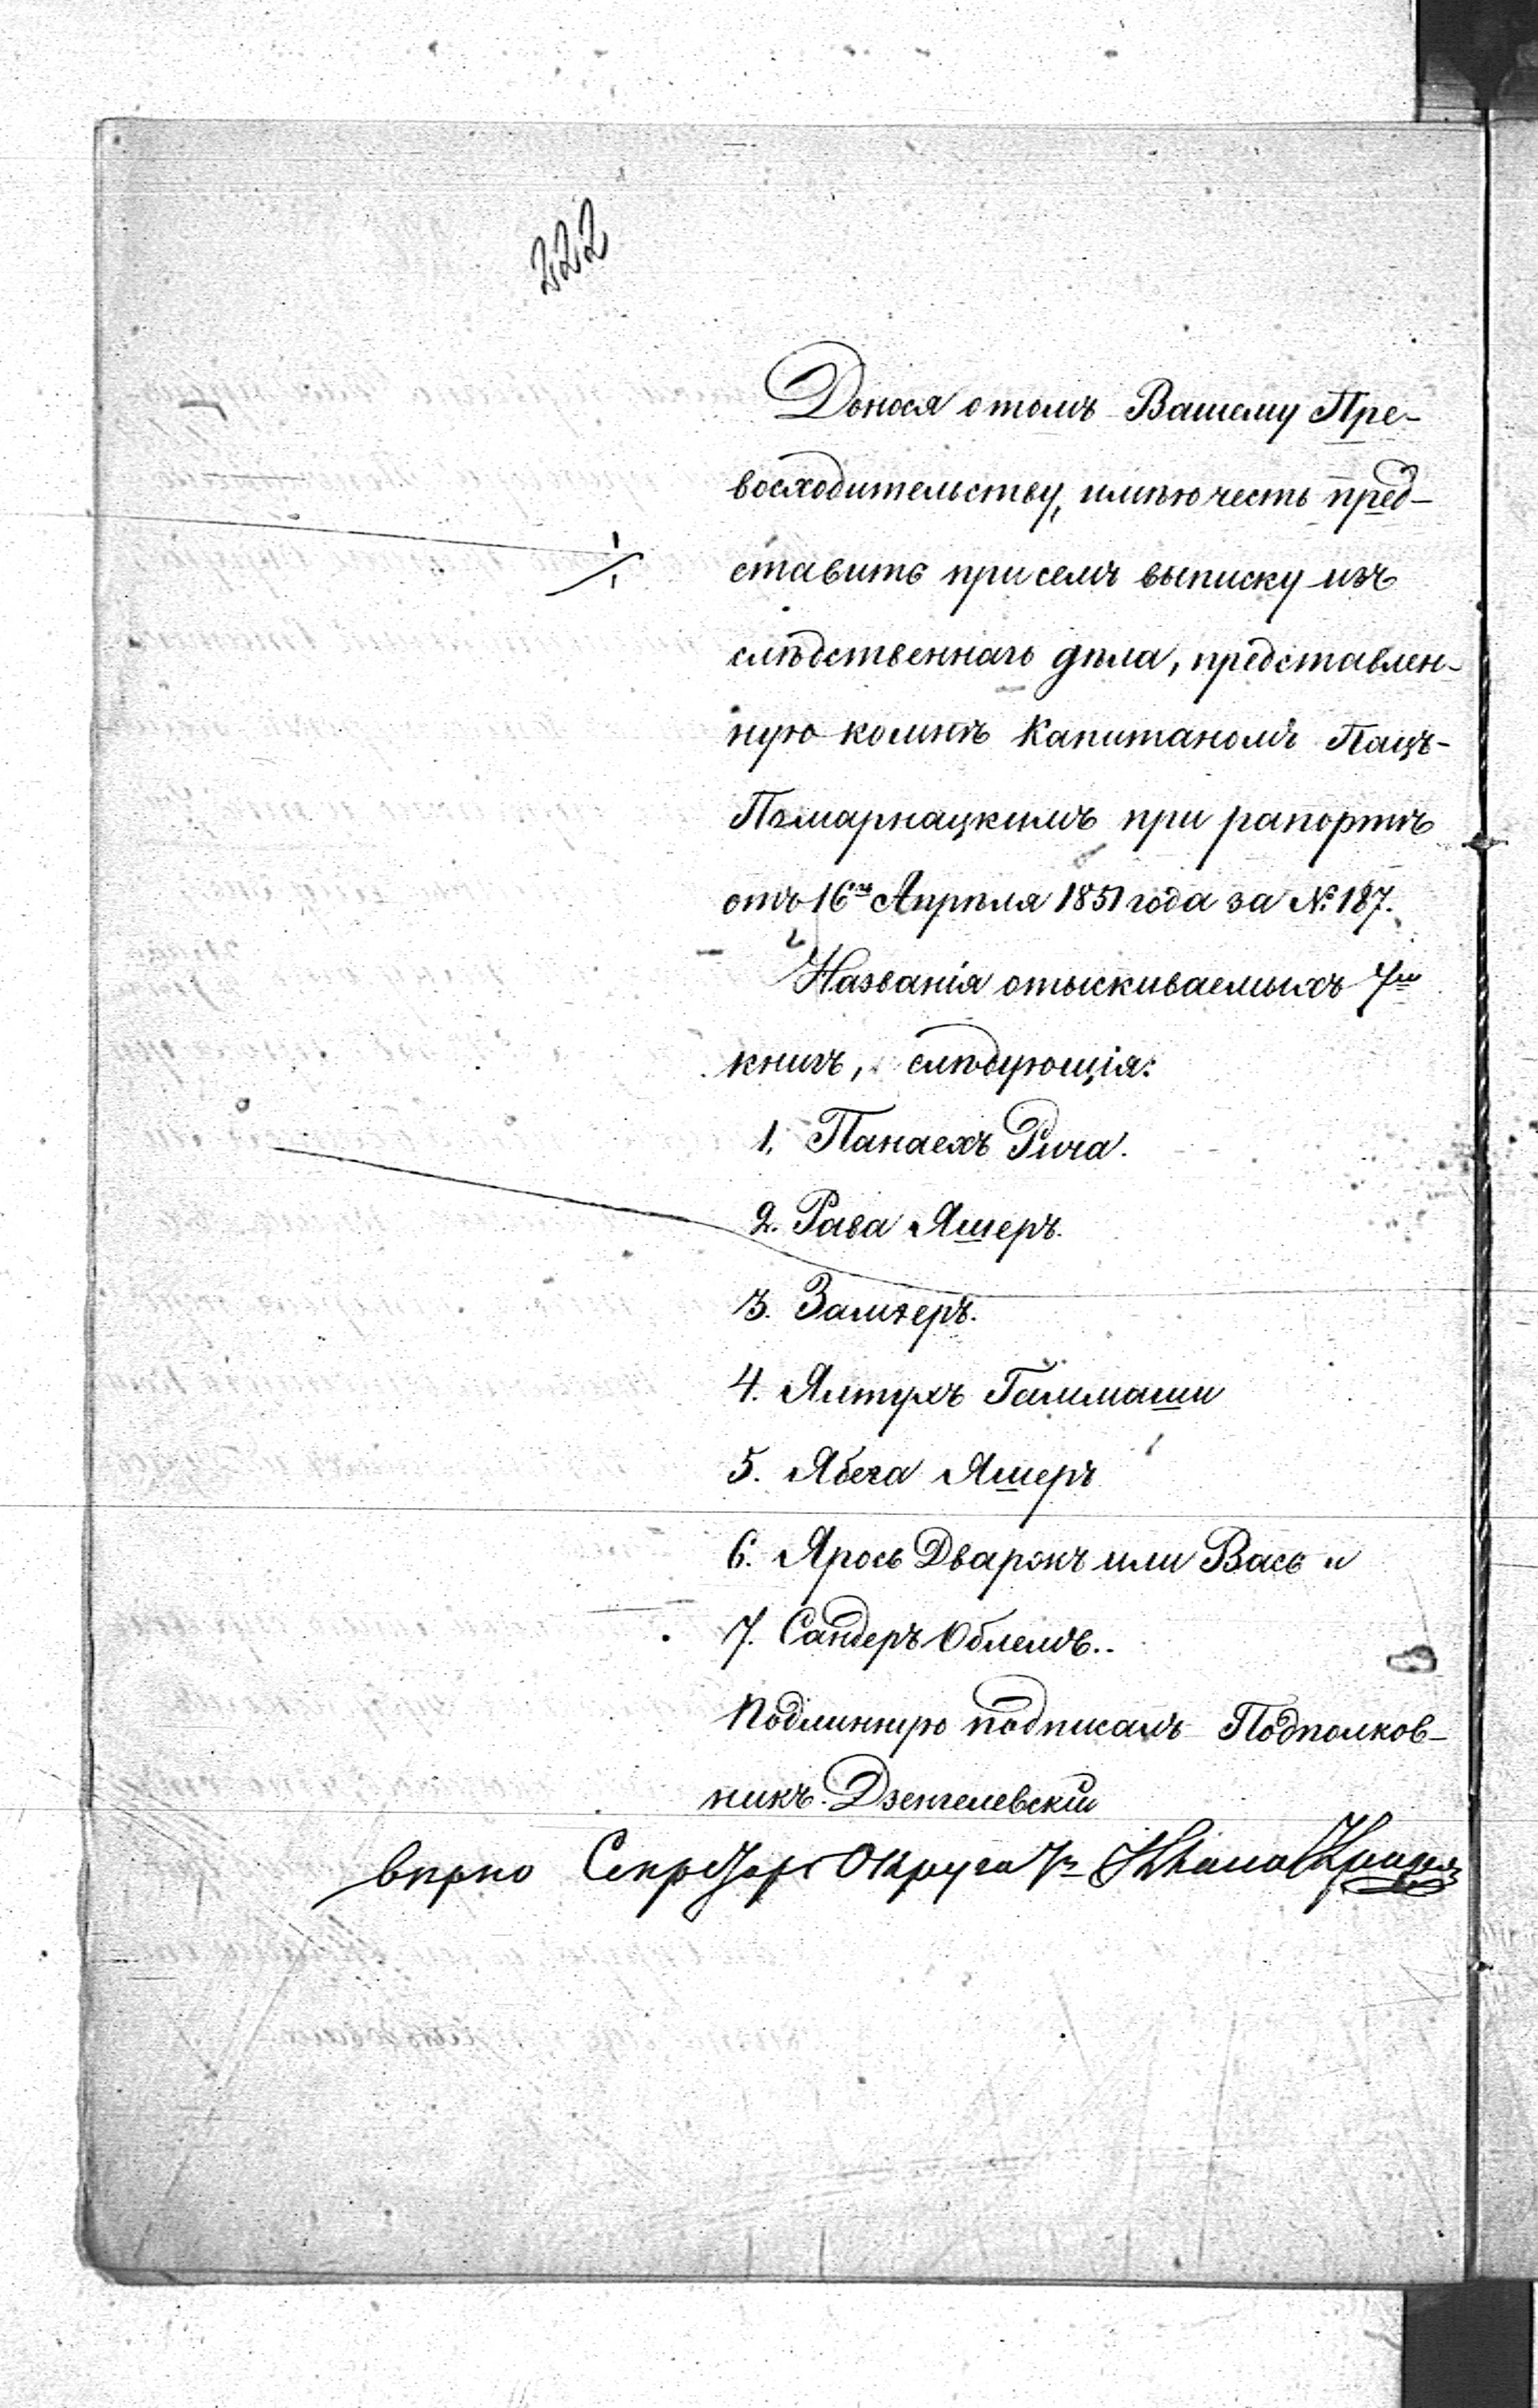 222
Донося о томъ Вашему Пре-
восходительству, имѣю честь пред-
ставить при семъ выписку изъ
слѣдственнаго дѣла, представлен-
ную комнѣ Капитаномъ Пацъ-
Помарнацкимъ при рапортѣ
отъ 16го Апрѣля 1851 года за № 187.
Названія отыскиваемыхъ 7ми
книгъ, слѣдующія:
1. Панаехъ Рича.
2. Рава Яшеръ.
3. Замѣеръ.
4. Ялтухъ Галмаши
5. Ябега Яшеръ
6. Ярось Дварокъ или Вась и
7. Сандеръ Облемъ..
Подлинную подписалъ Подполков-
никъ Дзенгелевскій
вѣрно Секретарь Округа